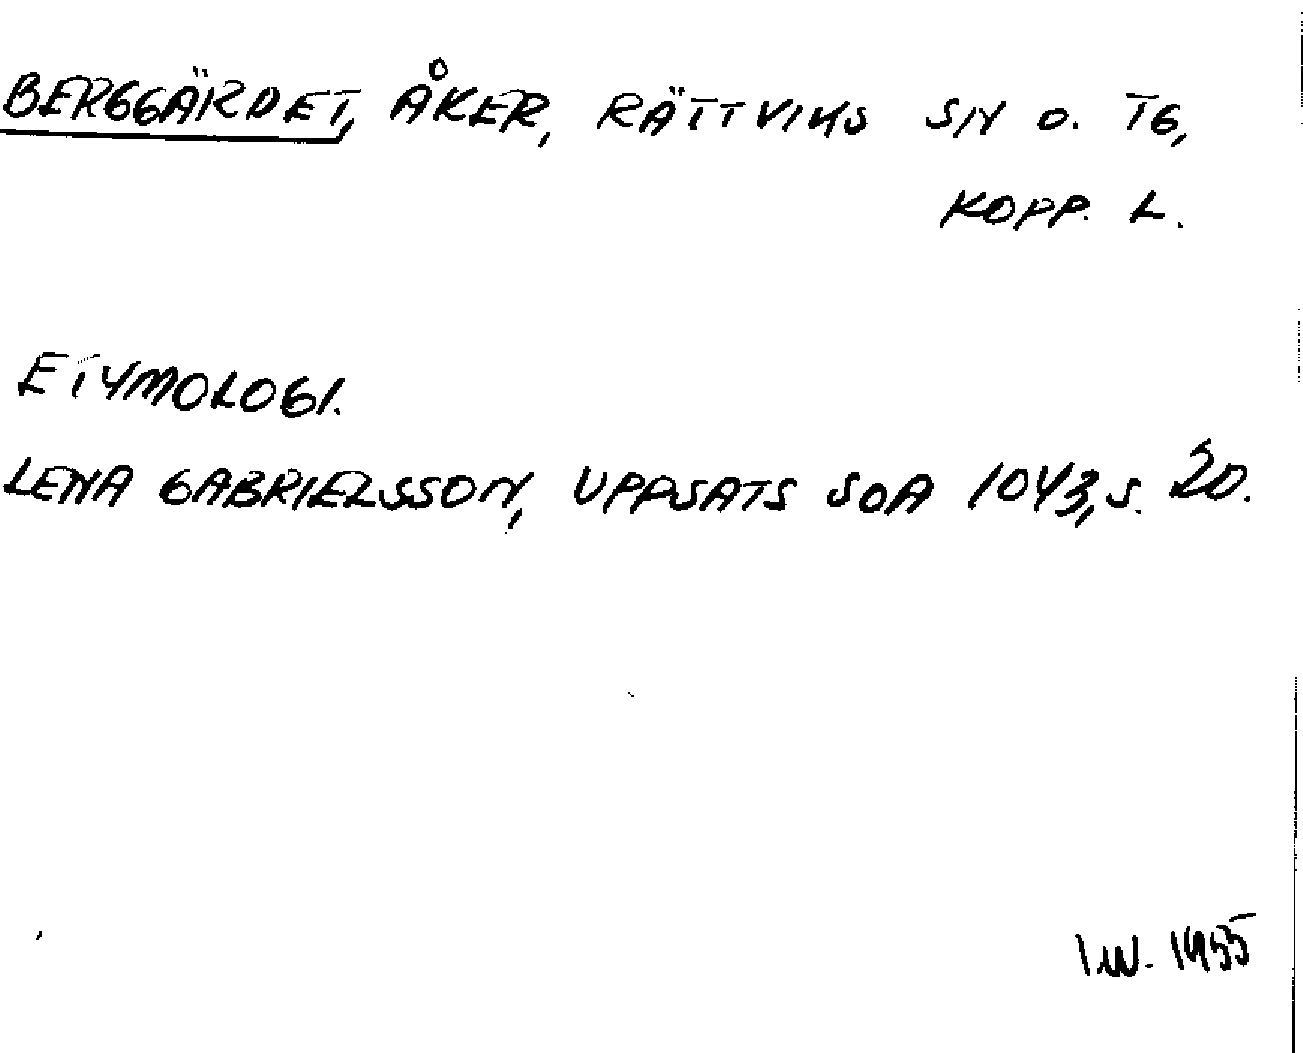 BERGGÄRDET, ÅKER, RÄTTVIKS SN O. TG,
KOPP. L.
ETYMOLOGI.
LENA GABRIELSSON, UPPSATS SOA 1043, S. 20.
1955